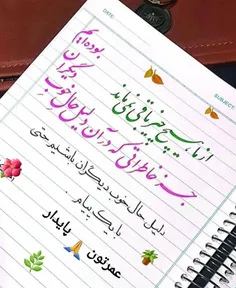 DATE:
SUBJECT:
از ما هیچ چیز باقی نمی‌ماند
جز خاطراتی که در آن دلیل حال خوب
دیگران
بوده‌ایم
دلیل حال خوب دیگران باشیم حتی
با یک پیام .
عمرتون 🙏 پایدار